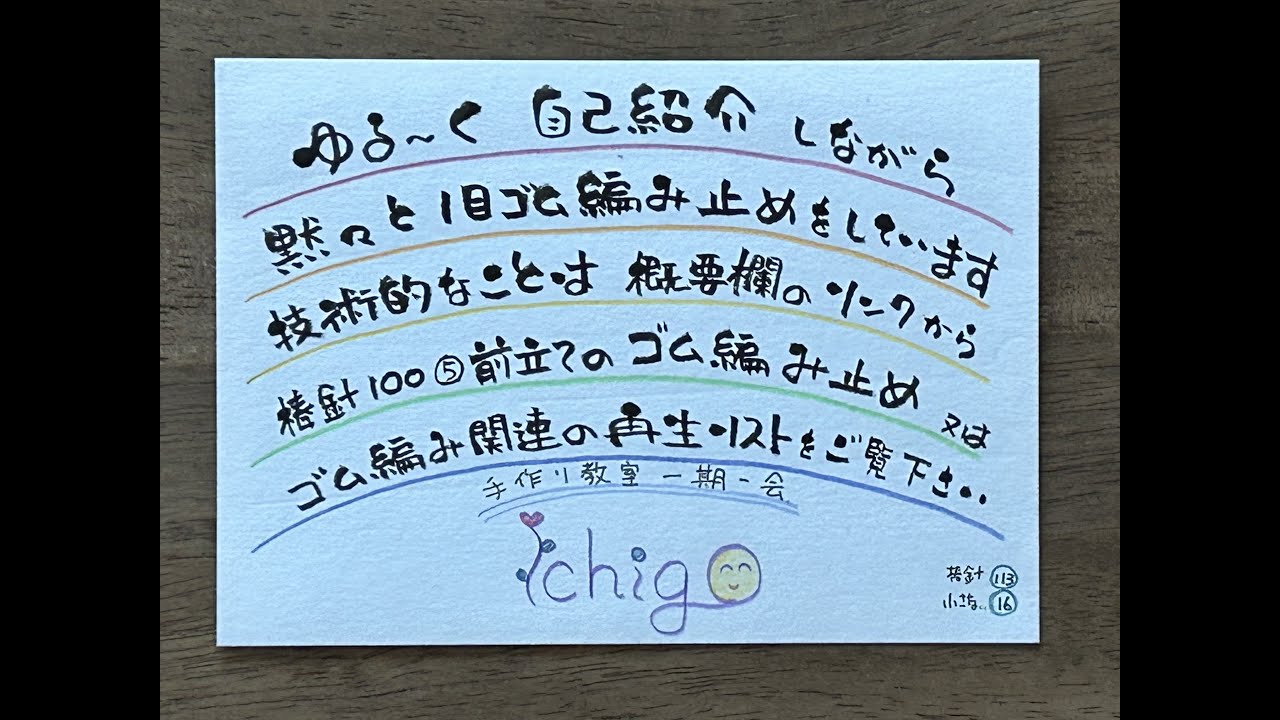 ゆる～く 自己紹介 しながら
黙々と1目ゴム編み止めをしています
技術的なことは 概要欄のリンクから
棒針100⑤前立てのゴム編み止め 又は
ゴム編み関連の再生リストをご覧下さい
手作り教室 一期一会
ichigo
棒針 113
小さな 16